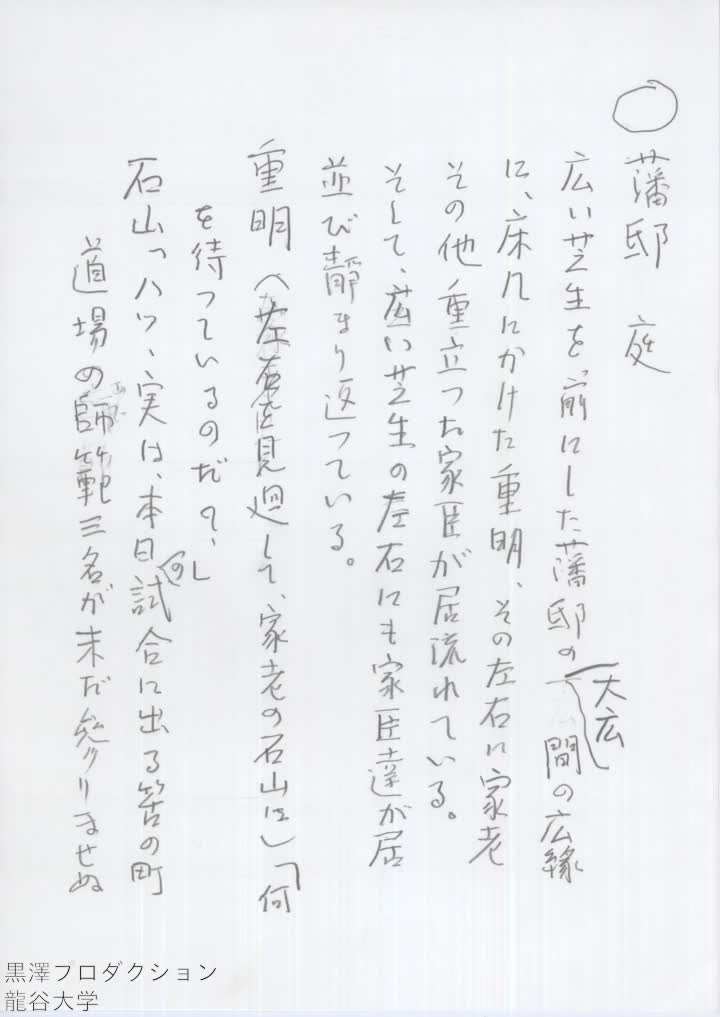 ○藩邸 庭
広い芝生を前にした藩邸の大広間の広縁
に、床几にかけた重明、その左右に家老
その他重立った家臣が居流れている。
そして、広い芝生の左右にも家臣達が居
並び静まり返っている。
重明（左右を見廻して、家老の石山に）「何
を待っているのだ？」
石山「ハッ、実は、本日の試合に出る筈の町
道場の師範三名が未だ参りませぬ
黒澤プロダクション
龍谷大学